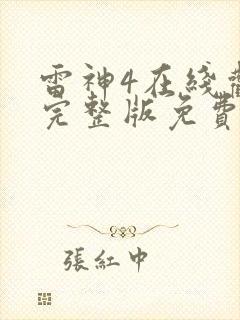 雷神4在綫
完整版免費
張紅中